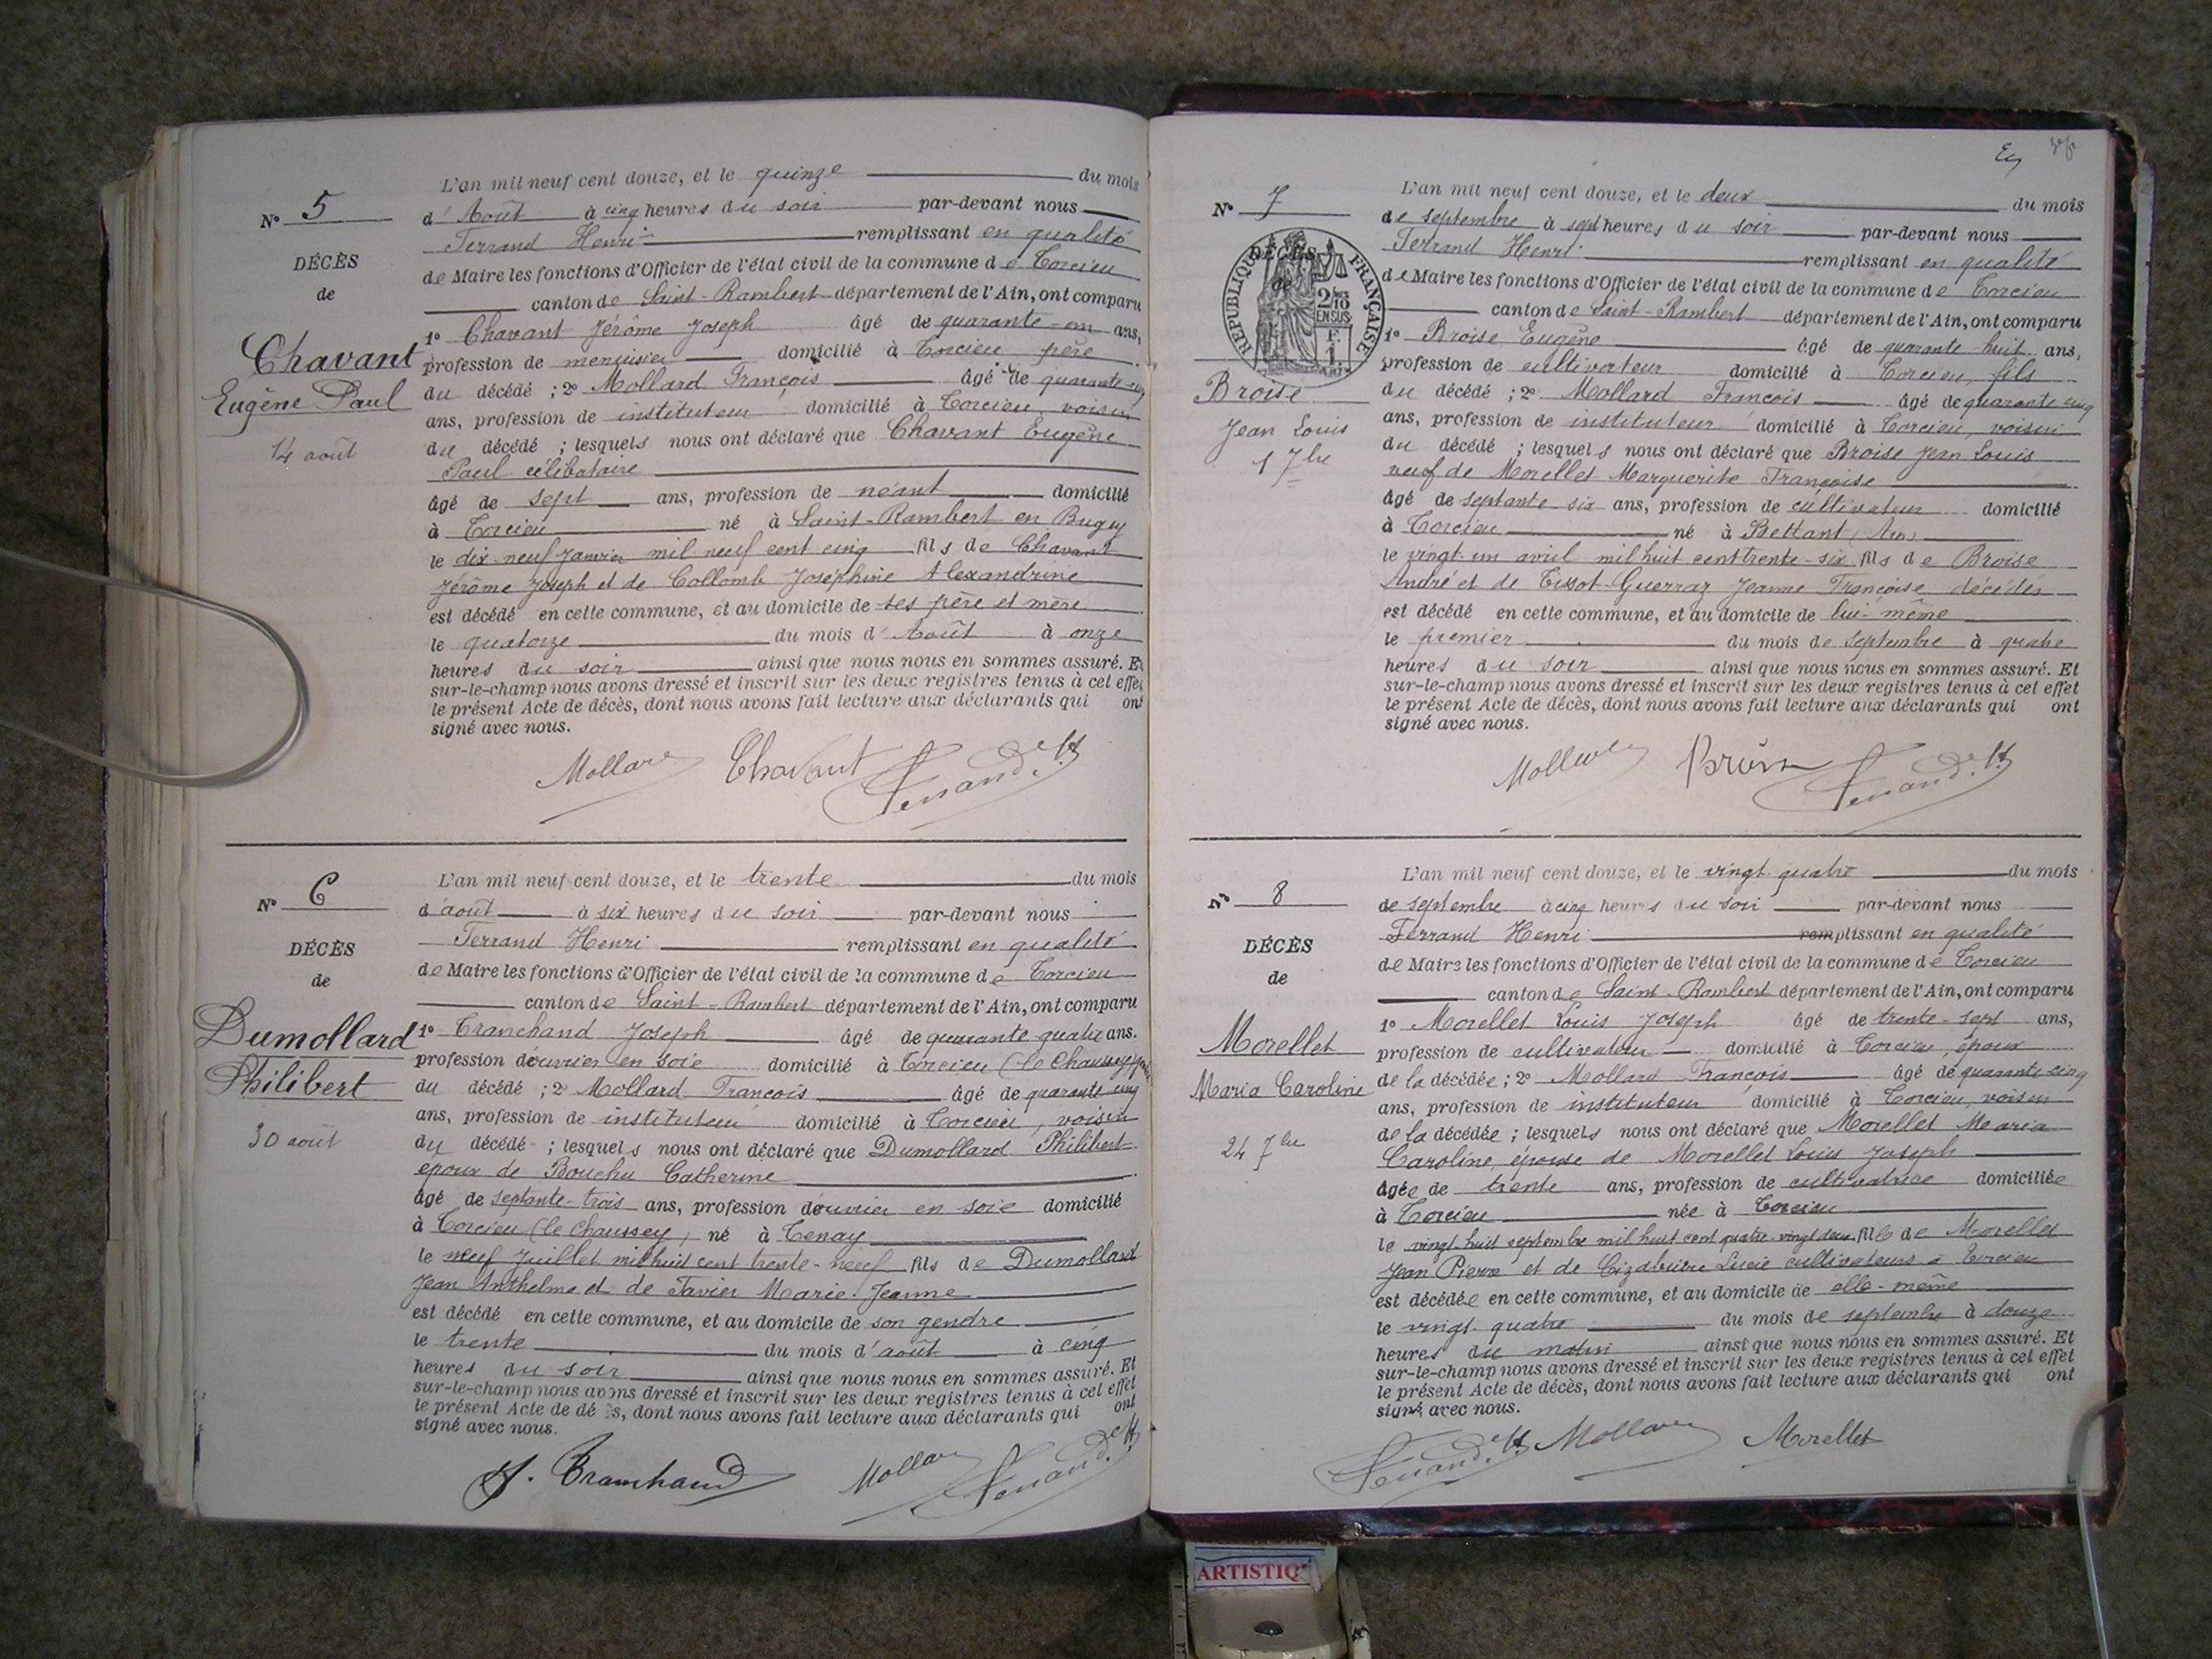 L'an mil neuf cent douze, et le quinze du mois
N° 5
d'Août à cinq heures du soir par-devant nous
Ferrand Henri remplissant en qualité
DÉCÈS
de Maire les fonctions d'Officier de l'état civil de la commune de Torcieu
de
canton de Saint-Rambert département de l'Ain, ont comparu
1° Chavant Jérôme Joseph âgé de quarante-un ans,
Chavant
profession de menuisier domicilié à Torcieu père
Eugène Paul
du décédé ; 2° Mollard François âgé de quarante cinq
ans, profession de instituteur domicilié à Torcieu, voisin
14 août
du décédé ; lesquels nous ont déclaré que Chavant Eugène
Paul célibataire
âgé de sept ans, profession de néant domicilié
à Torcieu né à Saint-Rambert en Bugey
le dix-neuf Janvier mil neuf cent cinq fils de Chavant
Jérôme Joseph et de Collomb Joséphine Alexandrine
est décédé en cette commune, et au domicile de ses père et mère
le quatorze du mois d'Août à onze
heures du soir ainsi que nous nous en sommes assuré. Et
sur-le-champ nous avons dressé et inscrit sur les deux registres tenus à cet effet
le présent Acte de décès, dont nous avons fait lecture aux déclarants qui ont
signé avec nous.
Mollard Chavant Ferrand H
L'an mil neuf cent douze, et le trente du mois
N° 6
d'août à six heures du soir par-devant nous
Ferrand Henri remplissant en qualité
DÉCÈS
de Maire les fonctions d'Officier de l'état civil de la commune de Torcieu
de
canton de Saint-Rambert département de l'Ain, ont comparu
Dumollard
1° Tranchand Joseph âgé de quarante-quatre ans.
profession d'ouvrier en soie domicilié à Torcieu (le Chaussey)
Philibert
du décédé ; 2° Mollard François âgé de quarante cinq
ans, profession de instituteur domicilié à Torcieu, voisin
30 août
du décédé ; lesquels nous ont déclaré que Dumollard Philibert
époux de Bouchu Catherine
âgé de septante-trois ans, profession d'ouvrier en soie domicilié
à Torcieu (le Chaussey) né à Tenay
le neuf Juillet mil huit cent trente-neuf fils de Dumollard
Jean Anthelme et de Tavier Marie Jeanne
est décédé en cette commune, et au domicile de son gendre
le trente du mois d'août à cinq
heures du soir ainsi que nous nous en sommes assuré. Et
sur-le-champ nous avons dressé et inscrit sur les deux registres tenus à cet effet
le présent Acte de décès, dont nous avons fait lecture aux déclarants qui ont
signé avec nous.
J. Tranchand Mollard Ferrand H
L'an mil neuf cent douze, et le deux du mois
N° 7
de septembre à sept heures du soir par-devant nous
Ferrand Henri remplissant en qualité
DÉCÈS
de
RÉPUBLIQUE FRANÇAISE
2/10 EN SUS
F. 1
de Maire les fonctions d'Officier de l'état civil de la commune de Torcieu
canton de Saint-Rambert département de l'Ain, ont comparu
1° Broise Eugène âgé de quarante huit ans,
profession de cultivateur domicilié à Torcieu, fils
Broise
du décédé ; 2° Mollard François âgé de quarante cinq
Jean Louis
ans, profession de instituteur domicilié à Torcieu, voisin
1 7bre
du décédé ; lesquels nous ont déclaré que Broise Jean Louis
veuf de Morellet Marguerite Françoise
âgé de septante six ans, profession de cultivateur domicilié
à Torcieu né à Bettant (Ain)
le vingt-un avril mil huit cent trente-six fils de Broise
André et de Tissot-Guerraz Jeanne Françoise décédés
est décédé en cette commune, et au domicile de lui-même
le premier du mois de septembre à quatre
heures du soir ainsi que nous nous en sommes assuré. Et
sur-le-champ nous avons dressé et inscrit sur les deux registres tenus à cet effet
le présent Acte de décès, dont nous avons fait lecture aux déclarants qui ont
signé avec nous.
Mollard Ferrand H
L'an mil neuf cent douze, et le vingt quatre du mois
N° 8
de septembre à cinq heures du soir par-devant nous
Ferrand Henri remplissant en qualité
DÉCÈS
de Maire les fonctions d'Officier de l'état civil de la commune de Torcieu
de
canton de Saint-Rambert département de l'Ain, ont comparu
1° Morellet Louis Joseph âgé de trente-sept ans,
Morellet
profession de cultivateur domicilié à Torcieu, époux
Maria Caroline
de la décédée ; 2° Mollard François âgé de quarante cinq
ans, profession de instituteur domicilié à Torcieu, voisin
24 7bre
de la décédée ; lesquels nous ont déclaré que Morellet Maria
Caroline, épouse de Morellet Louis Joseph
âgée de trente ans, profession de cultivatrice domiciliée
à Torcieu née à Torcieu
le vingt-huit septembre mil huit cent quatre-vingt deux fille de Morellet
Jean Pierre et de Lucie cultivateurs à Torcieu
est décédée en cette commune, et au domicile de elle-même
le vingt quatre du mois de septembre à douze
heures du matin ainsi que nous nous en sommes assuré. Et
sur-le-champ nous avons dressé et inscrit sur les deux registres tenus à cet effet
le présent Acte de décès, dont nous avons fait lecture aux déclarants qui ont
signé avec nous.
Ferrand H Mollard Morellet
ARTISTIQ